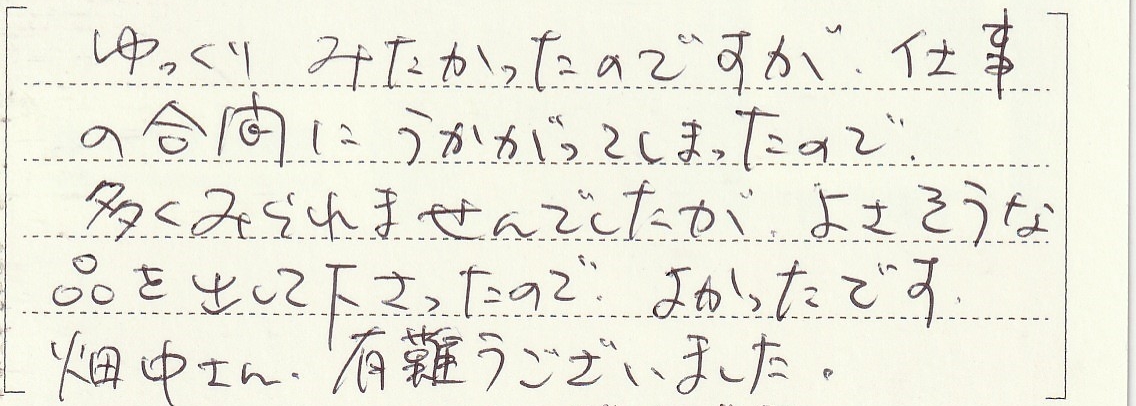 ゆっくり みたかったのですが、仕事
の合間にうかがってしまったので、
多くみられませんでしたが、よさそうな
品を出して下さったので、よかったです。
畑中さん、有難うございました。